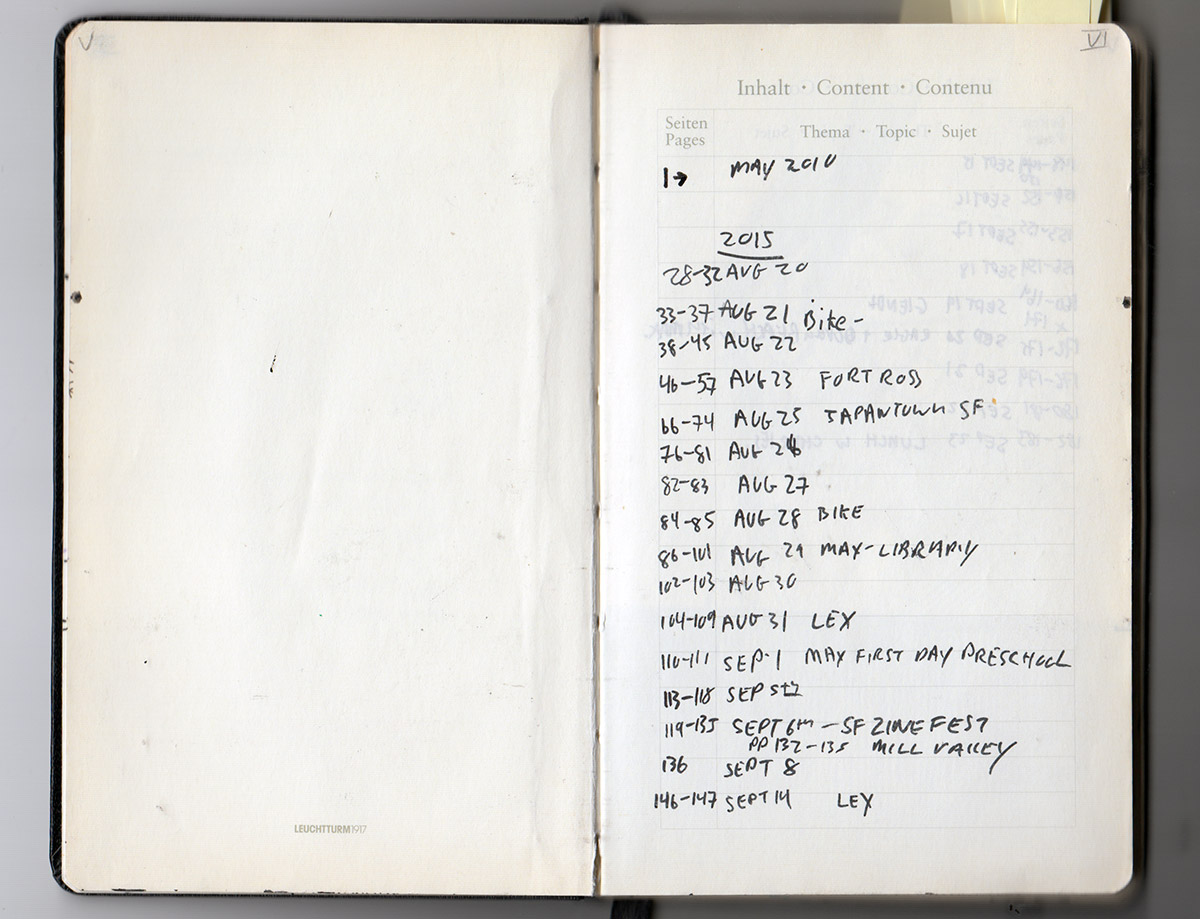 V
VI
Inhalt · Content · Contenu
Seiten
Pages
Thema · Topic · Sujet
1→ MAY 2010
2015
28-32 AUG 20
33-37 AUG 21 Bike -
38-45 AUG 22
46-57 AUG 23 FORT ROSS
66-74 AUG 25 JAPANTOWN SF
76-81 AUG 26
82-83 AUG 27
84-85 AUG 28 BIKE
86-101 AUG 29 MAX-LIBRARY
102-103 AUG 30
104-109 AUG 31 LEX
110-111 SEP 1 MAX FIRST DAY PRESCHOOL
113-118 SEP 5th
119-135 SEPT 6th - SF ZINE FEST
PP 132-135 MILL VALLEY
136 SEPT 8
146-147 SEPT 14 LEX
LEUCHTTURM1917